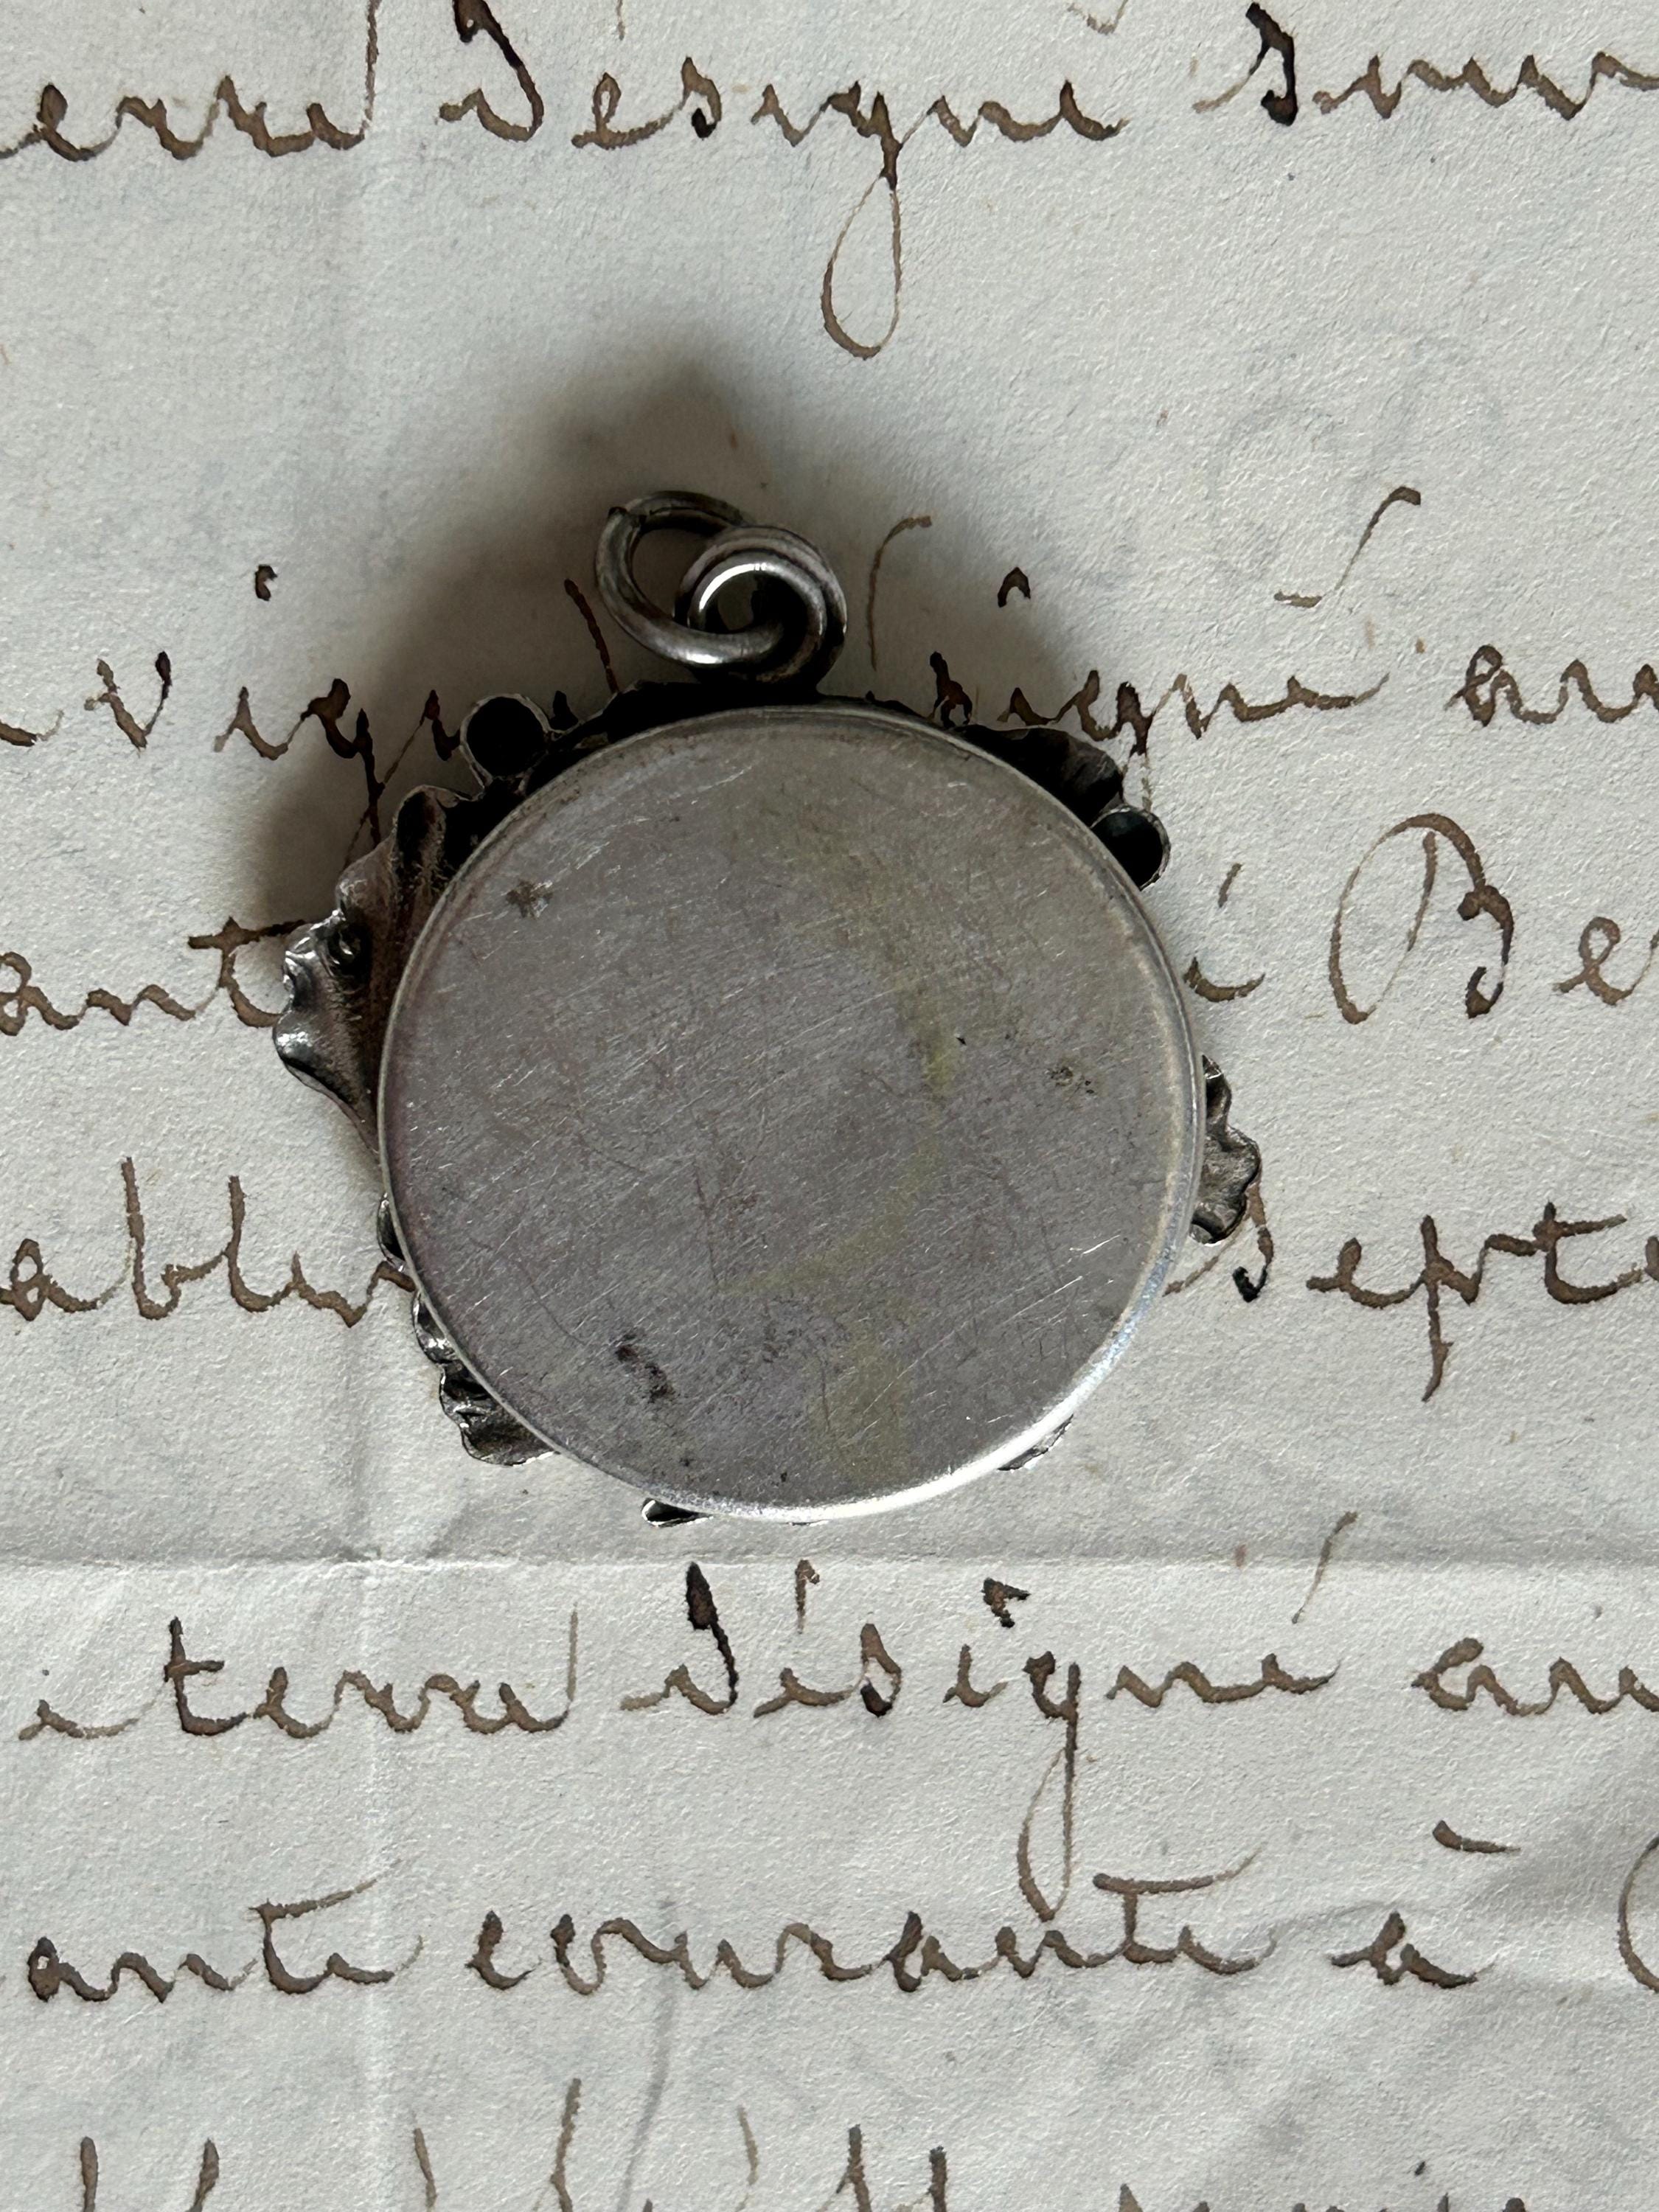 erre désigné sur
vigne désigné au
ante à Be
able septe
e terre désigné au
ante courante à